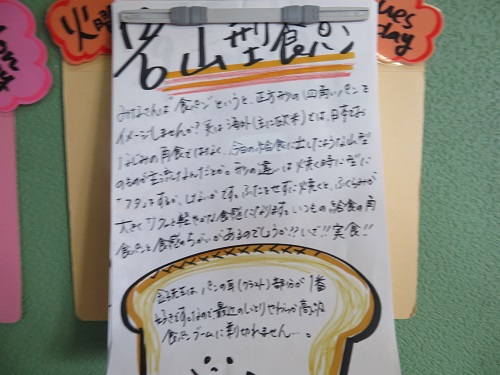 火曜
ues
day
on
y
名山型食パン
みなさんは"食パン"というと、正方形の(四角い)パンを
イメージしませんか?実は海外(主に欧米)では、日本でお
なじみの角食ではなく、今日の給食に出したような山型
のものが主流なんだとか。形の違いは焼く時に型に
"フタ"をするか、しないかです。ふたをせずに焼くと、ふくらみが
大きくサクッと軽やかな食感になります。いつもの給食の角
食パンと食感のちがいがあるのでしょうか??いざ!!実食!!
は、パンの耳(クラスト)部分が1番
好きです。なので最近のしっとりやわらか高級
食パンブームに乗り切れません…。